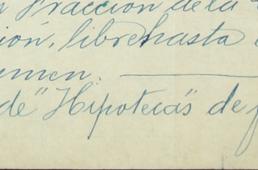 n Fracción de la
ión, libre hasta
men.
de "Hipotecas" de f